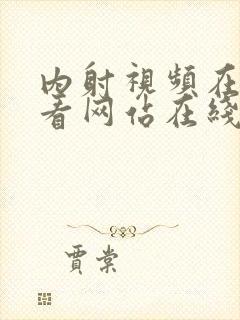 内射視頻在
看网佔在綫
賈棠